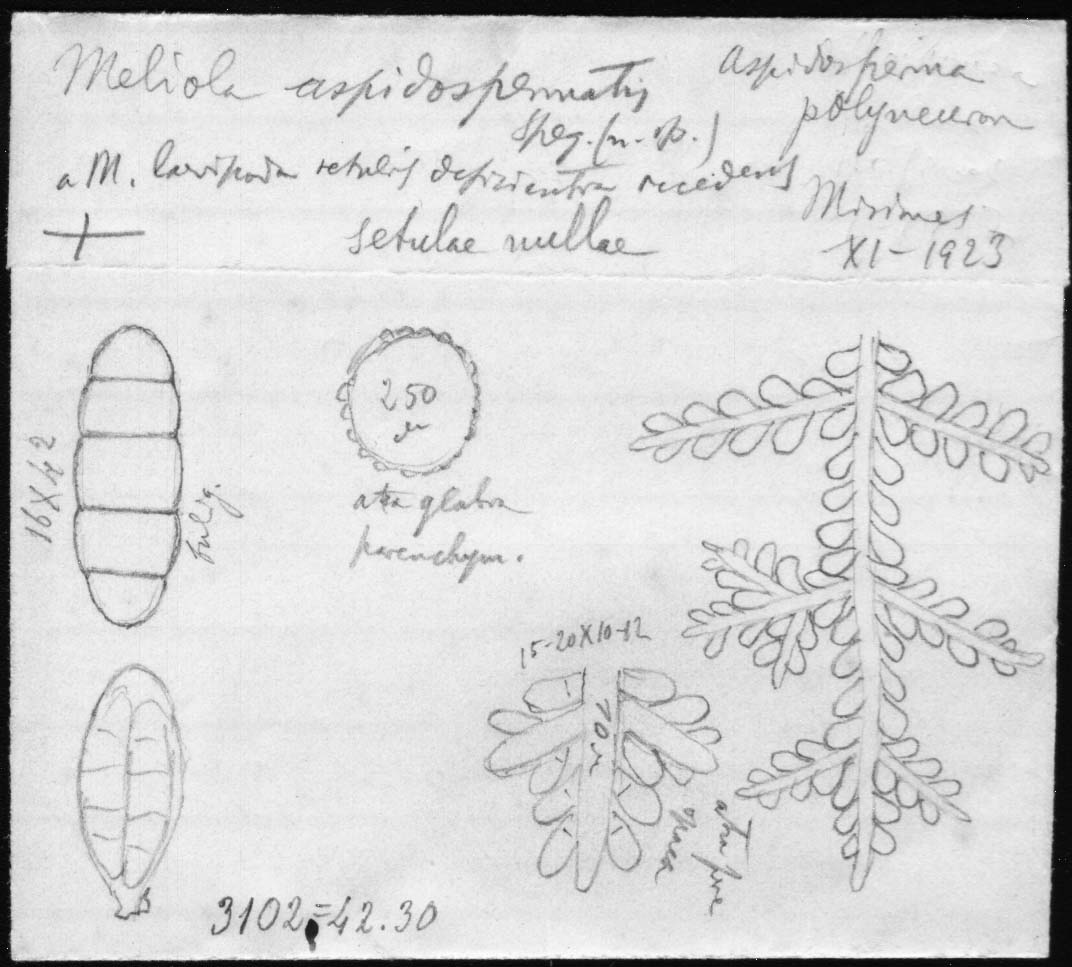 Meliola aspidospermatis
Speg. (n. sp.)
Aspidosperma
polyneuron
a M. laevipoda setulis deficientia recedens
setulae nullae
Misiones
XI-1923
16X42
fulig.
250
atra glabra
parenchym.
15-20X10-12
atra fere
opaca
3102=42.30